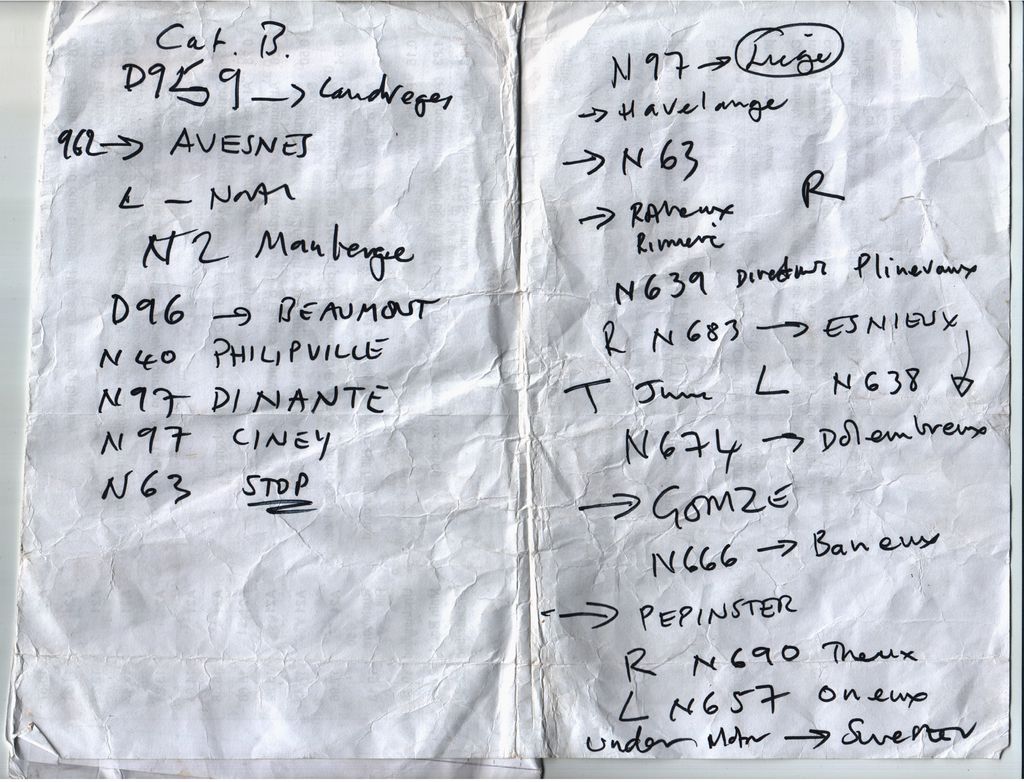 Cat. B.
D959 → Landreges
962 → AVESNES
L – North
N2 Maubergee
D96 → BEAUMONT
N40 PHILIPVILLE
N97 DINANTE
N97 CINEY
N63 STOP
N97 → Liege
→ Havelange
→ N63
R
→
N639 Plinevaux
R N683 → ESNIEUX
T Junc L N638
N674 → Dolembreux
→ GOMZE
N666 → Baneux
→ PEPINSTER
R N690 Theux
L N657 Oneux
under Motor →